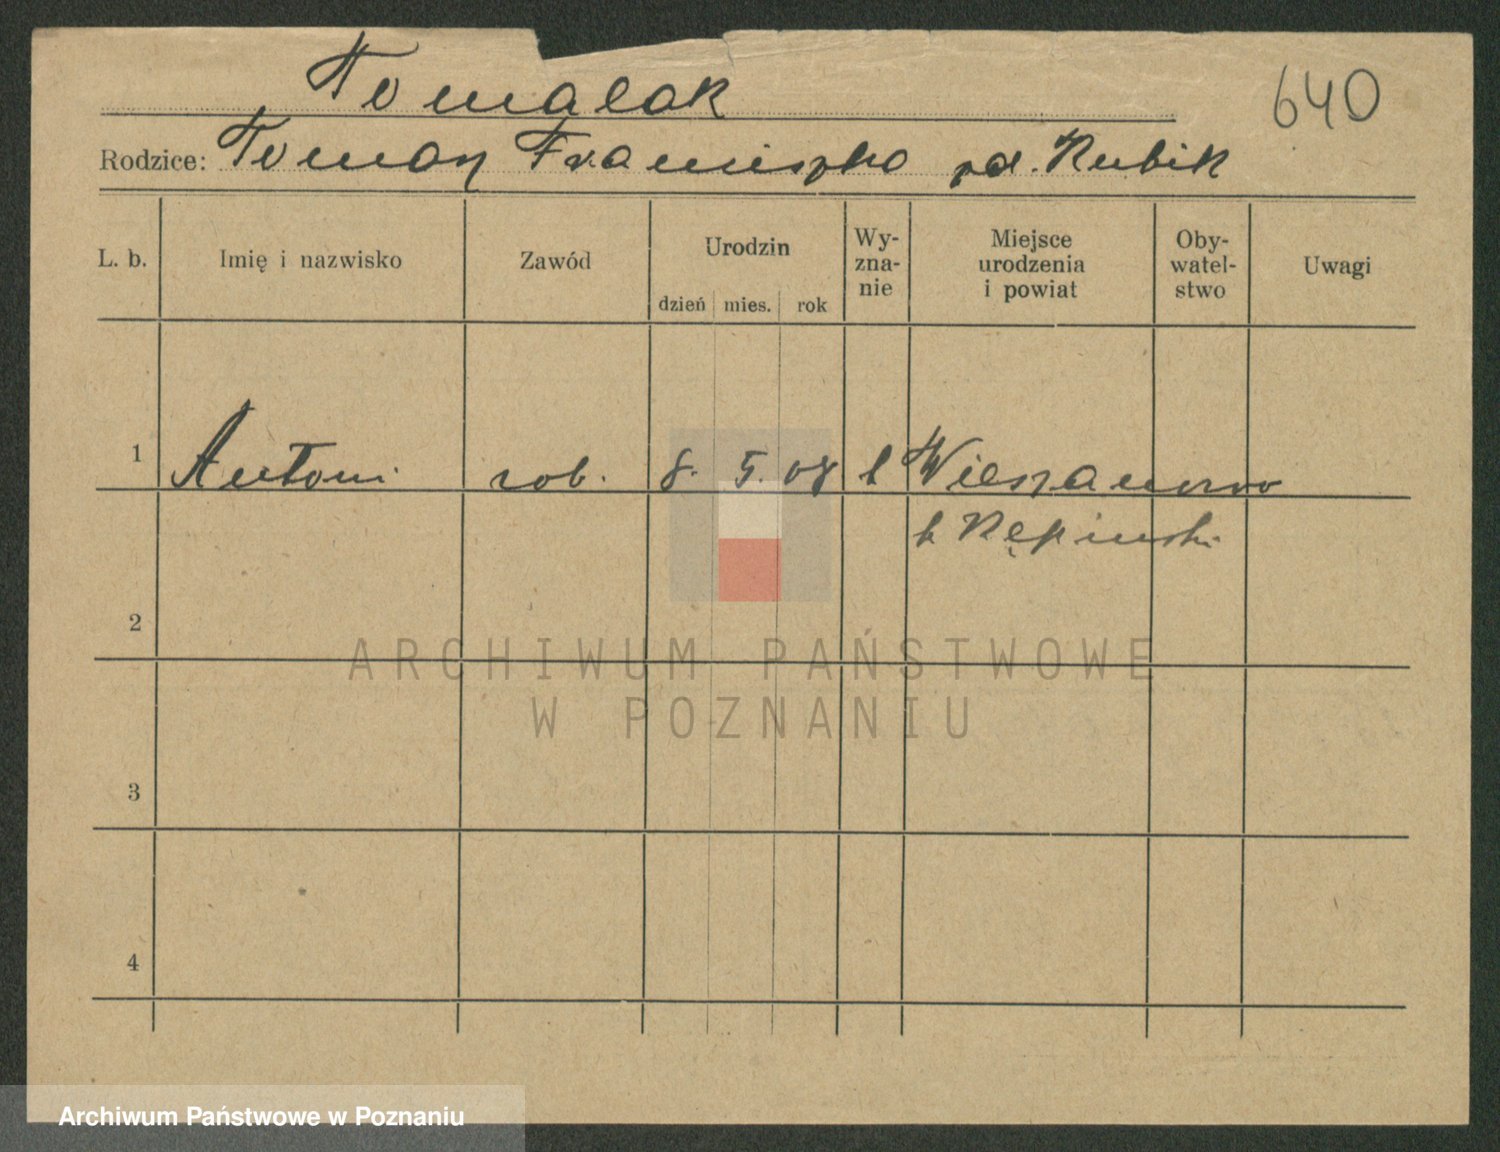 Tomalak
640
Rodzice: Tomasz Franciszka zd. Kubik
L. b.
Imię i nazwisko
Zawód
Urodzin
dzień mies. rok
Wy-
zna-
nie
Miejsce
urodzenia
i powiat
Oby-
watel-
stwo
Uwagi
1 Antoni rob. 8. 5. 08 k Wieszanowo
p Kępiński
2
3
4
ARCHIWUM PAŃSTWOWE
W POZNANIU
Archiwum Państwowe w Poznaniu